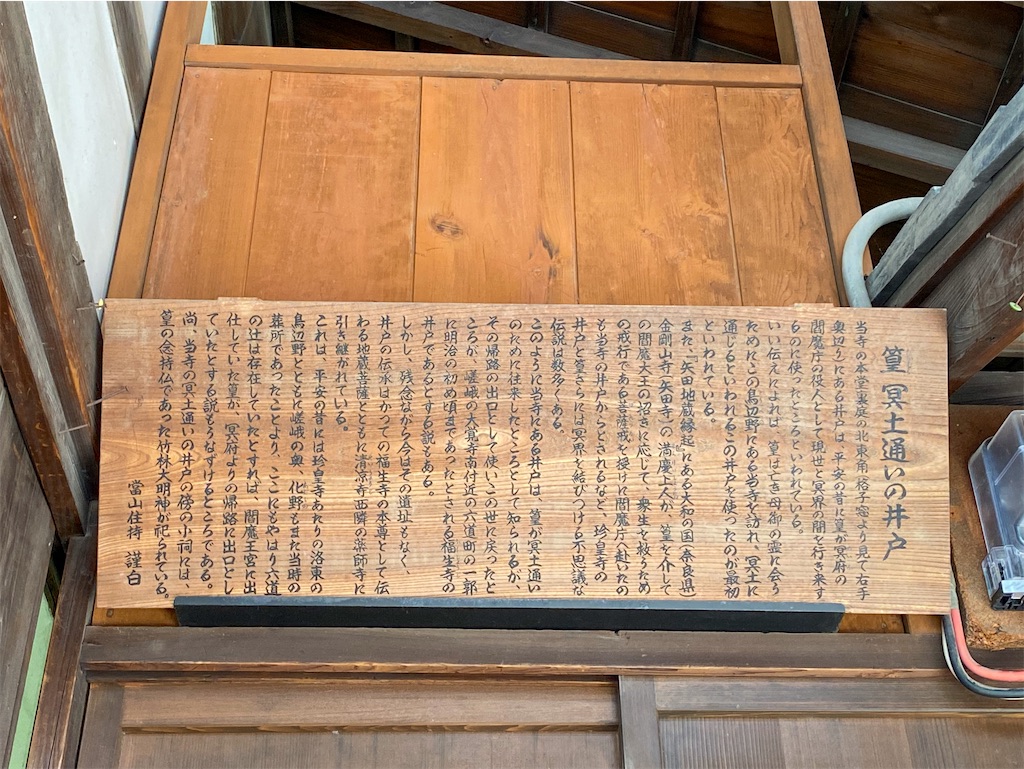 篁 冥土通いの井戸
当寺の本堂裏庭の北東角、格子窓より見て右手
奥辺りにある井戸は、平安の昔に篁が冥府の
閻魔庁の役人として、現世と冥界の間を行き来す
るのに使ったところといわれている。
いい伝えによれば、篁は亡き母御の霊に会う
ためにこの鳥辺野にある当寺を訪れ、冥土に
通じるといわれるこの井戸を使ったのが最初
といわれている。
また、「矢田地蔵縁起」にある大和の国(奈良県)
金剛山寺(矢田寺)の満慶上人が、篁を介して
の閻魔大王の招きに応じて、衆生を救うため
の戒行である菩薩戒を授けに閻魔庁へ赴いたの
も当寺の井戸からとされるなど、珍皇寺の
井戸と篁さんには冥界を結びつける不思議な
伝説は数多くある。
このように当寺にある井戸は、篁が冥土通い
のために往来したところとして知られるが、
その帰路の出口として使い、この世に戻ったと
ころが、嵯峨の大覚寺南付近の六道町の一郭
に明治の初め頃まであったとされる福生寺の
井戸であるとする説もある。
しかし、残念ながら今はその遺址もなく、
井戸の伝承はかつての福生寺の本尊として伝
わる地蔵菩薩とともに清凉寺西隣の薬師寺に
引き継がれている。
これは、平安の昔には珍皇寺あたりの洛東の
鳥辺野とともに嵯峨の奥、化野もまた当時の
葬所であったことより、ここにもやはり六道
の辻は存在していたとすれば、閻魔王宮に出
仕していた篁が、冥府よりの帰路に出口とし
ていたとする説もうなずけるところである。
尚、当寺の冥土通いの井戸の傍の小祠には
篁の念持仏であった竹林大明神が祀られている。
當山住持 謹白